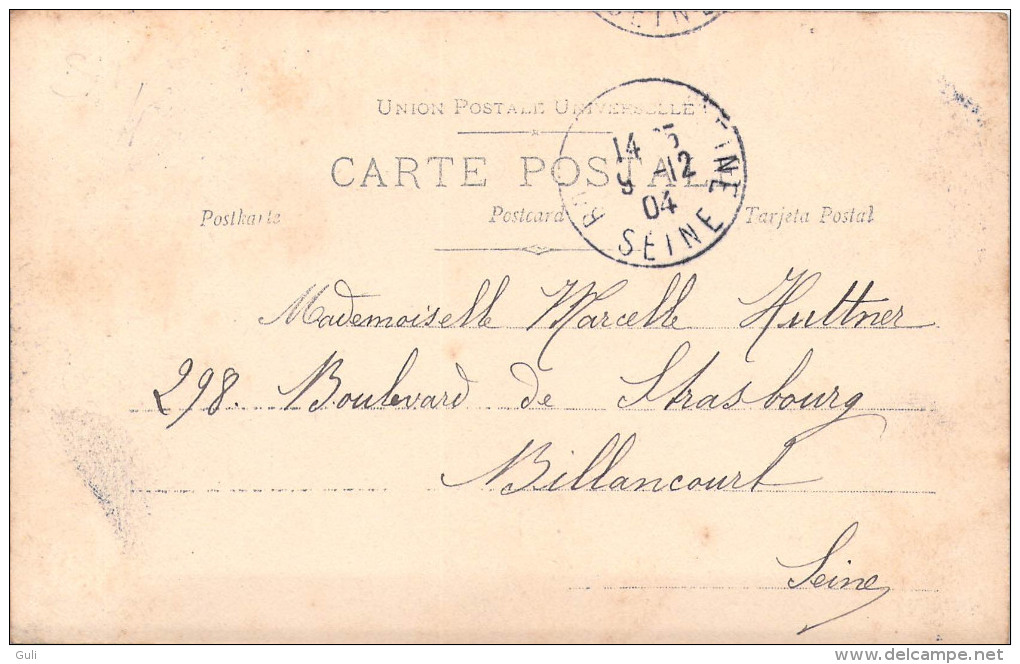 SEIN
UNION POSTALE UNIVERSELLE
CARTE POSTALE
14 5
9 12
04
SEINE
Postkarte Postcard Tarjeta Postal
Mademoiselle Marcelle Huttner
298. Boulevard de Strasbourg
Billancourt
Seine
Guli
delcampe.net